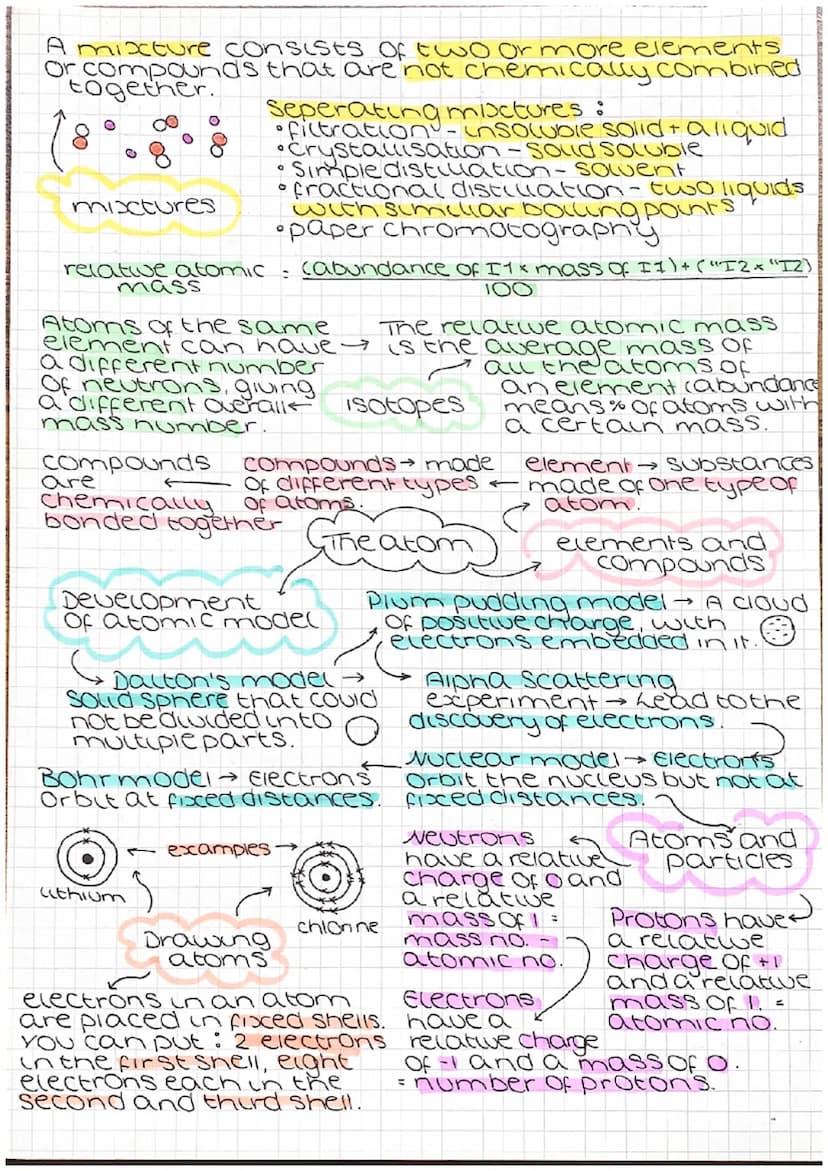 A mixture consists of two or more elements
or compounds that are not chemically combined
together.
mixtures
Seperating mixtures :
• filtration - insoluble solid + a liquid
• crystallisation - solid soluble
• simple distillation - solvent
• fractional distillation - two liquids
with similiar boiling points
• paper chromotography
relative atomic mass = (abundance of I1 x mass of I1) + ("I2 x "I2)
100
Atoms of the same
element can have →
a different number
of neutrons, giving
a different overall ←
mass number.
isotopes
The relative atomic mass
is the average mass of
all the atoms of
an element (abundance
means % of atoms with
a certain mass.
compounds
are
chemically
bonded together
compounds → made
of different types
of atoms.
element → substances
made of one type of
atom.
The atom
elements and
compounds
Development
of atomic model
Plum pudding model → A cloud
of positive charge, with
electrons embedded in it.
Dalton's model →
solid sphere that could
not be divided into
multiple parts.
Alpha Scattering
experiment → Lead to the
discovery of electrons.
Bohr model → Electrons
orbit at fixed distances.
Nuclear model → Electrons
orbit the nucleus but not at
fixed distances.
← examples →
lithium
chlorine
Drawing
atoms
electrons in an atom
are placed in fixed shells.
You can put : 2 electrons
in the first shell, eight
electrons each in the
second and third shell.
Neutrons
have a relative
charge of 0 and
a relative
mass of 1 =
mass no. -
atomic no.
Atoms and
particles
Protons have
a relative
charge of +1
and a relative
mass of 1. =
atomic no.
Electrons
have a
relative charge
of -1 and a mass of 0.
= number of protons.